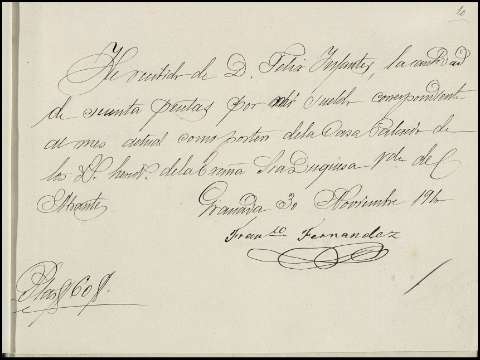 10
He recibido de D. Felix Infantes, la cantidad
de sesenta pesetas por mi sueldo correspondiente
al mes actual como portero de la Casa Palacio de
los Sres. hered. de la Excma Sra Duquesa Vda de
Granada 30 Noviembre 191
Franco Fernandez
Ptas 60